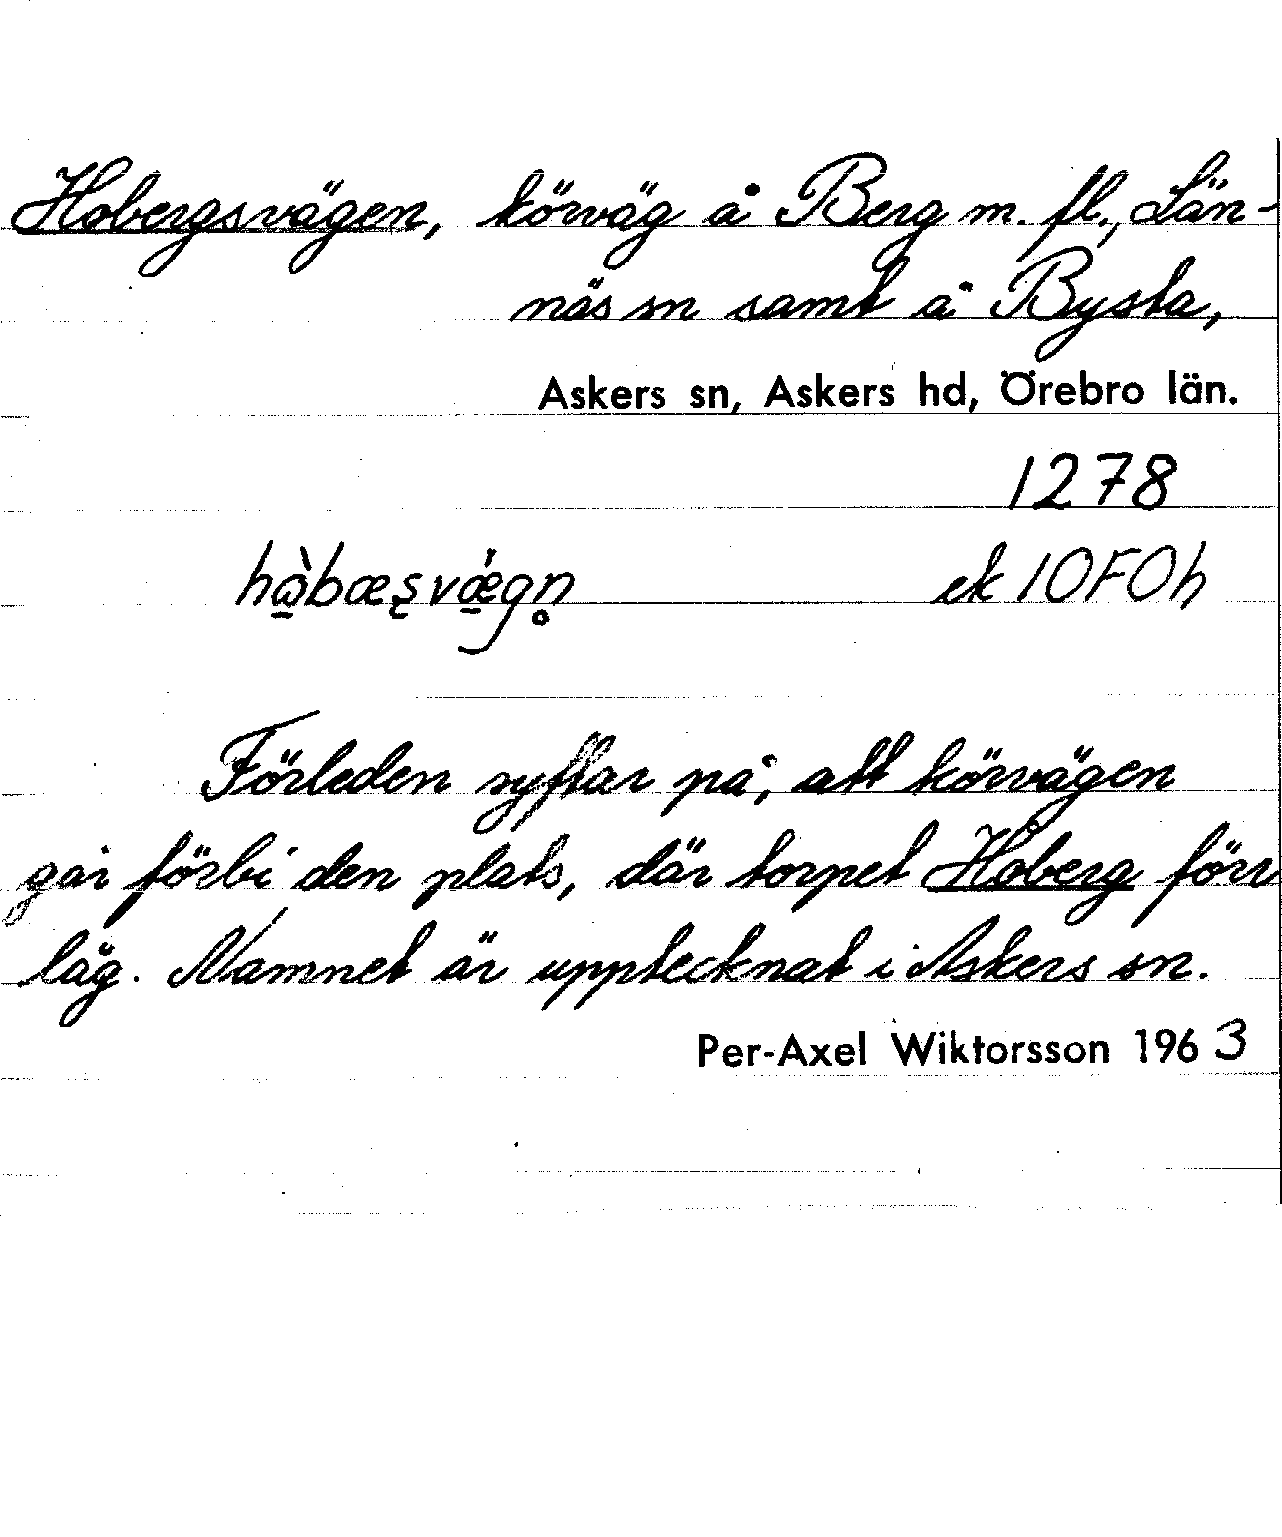 Hobergsvägen, körväg å Berg m. fl., Län-
näs sn samt å Bysta,
Askers sn, Askers hd, Örebro län.
1278
ek 10F0h
Förleden syftar på, att körvägen
går förbi den plats, där torpet Hoberg förr
låg. Namnet är upptecknat i Askers sn.
Per-Axel Wiktorsson 1963